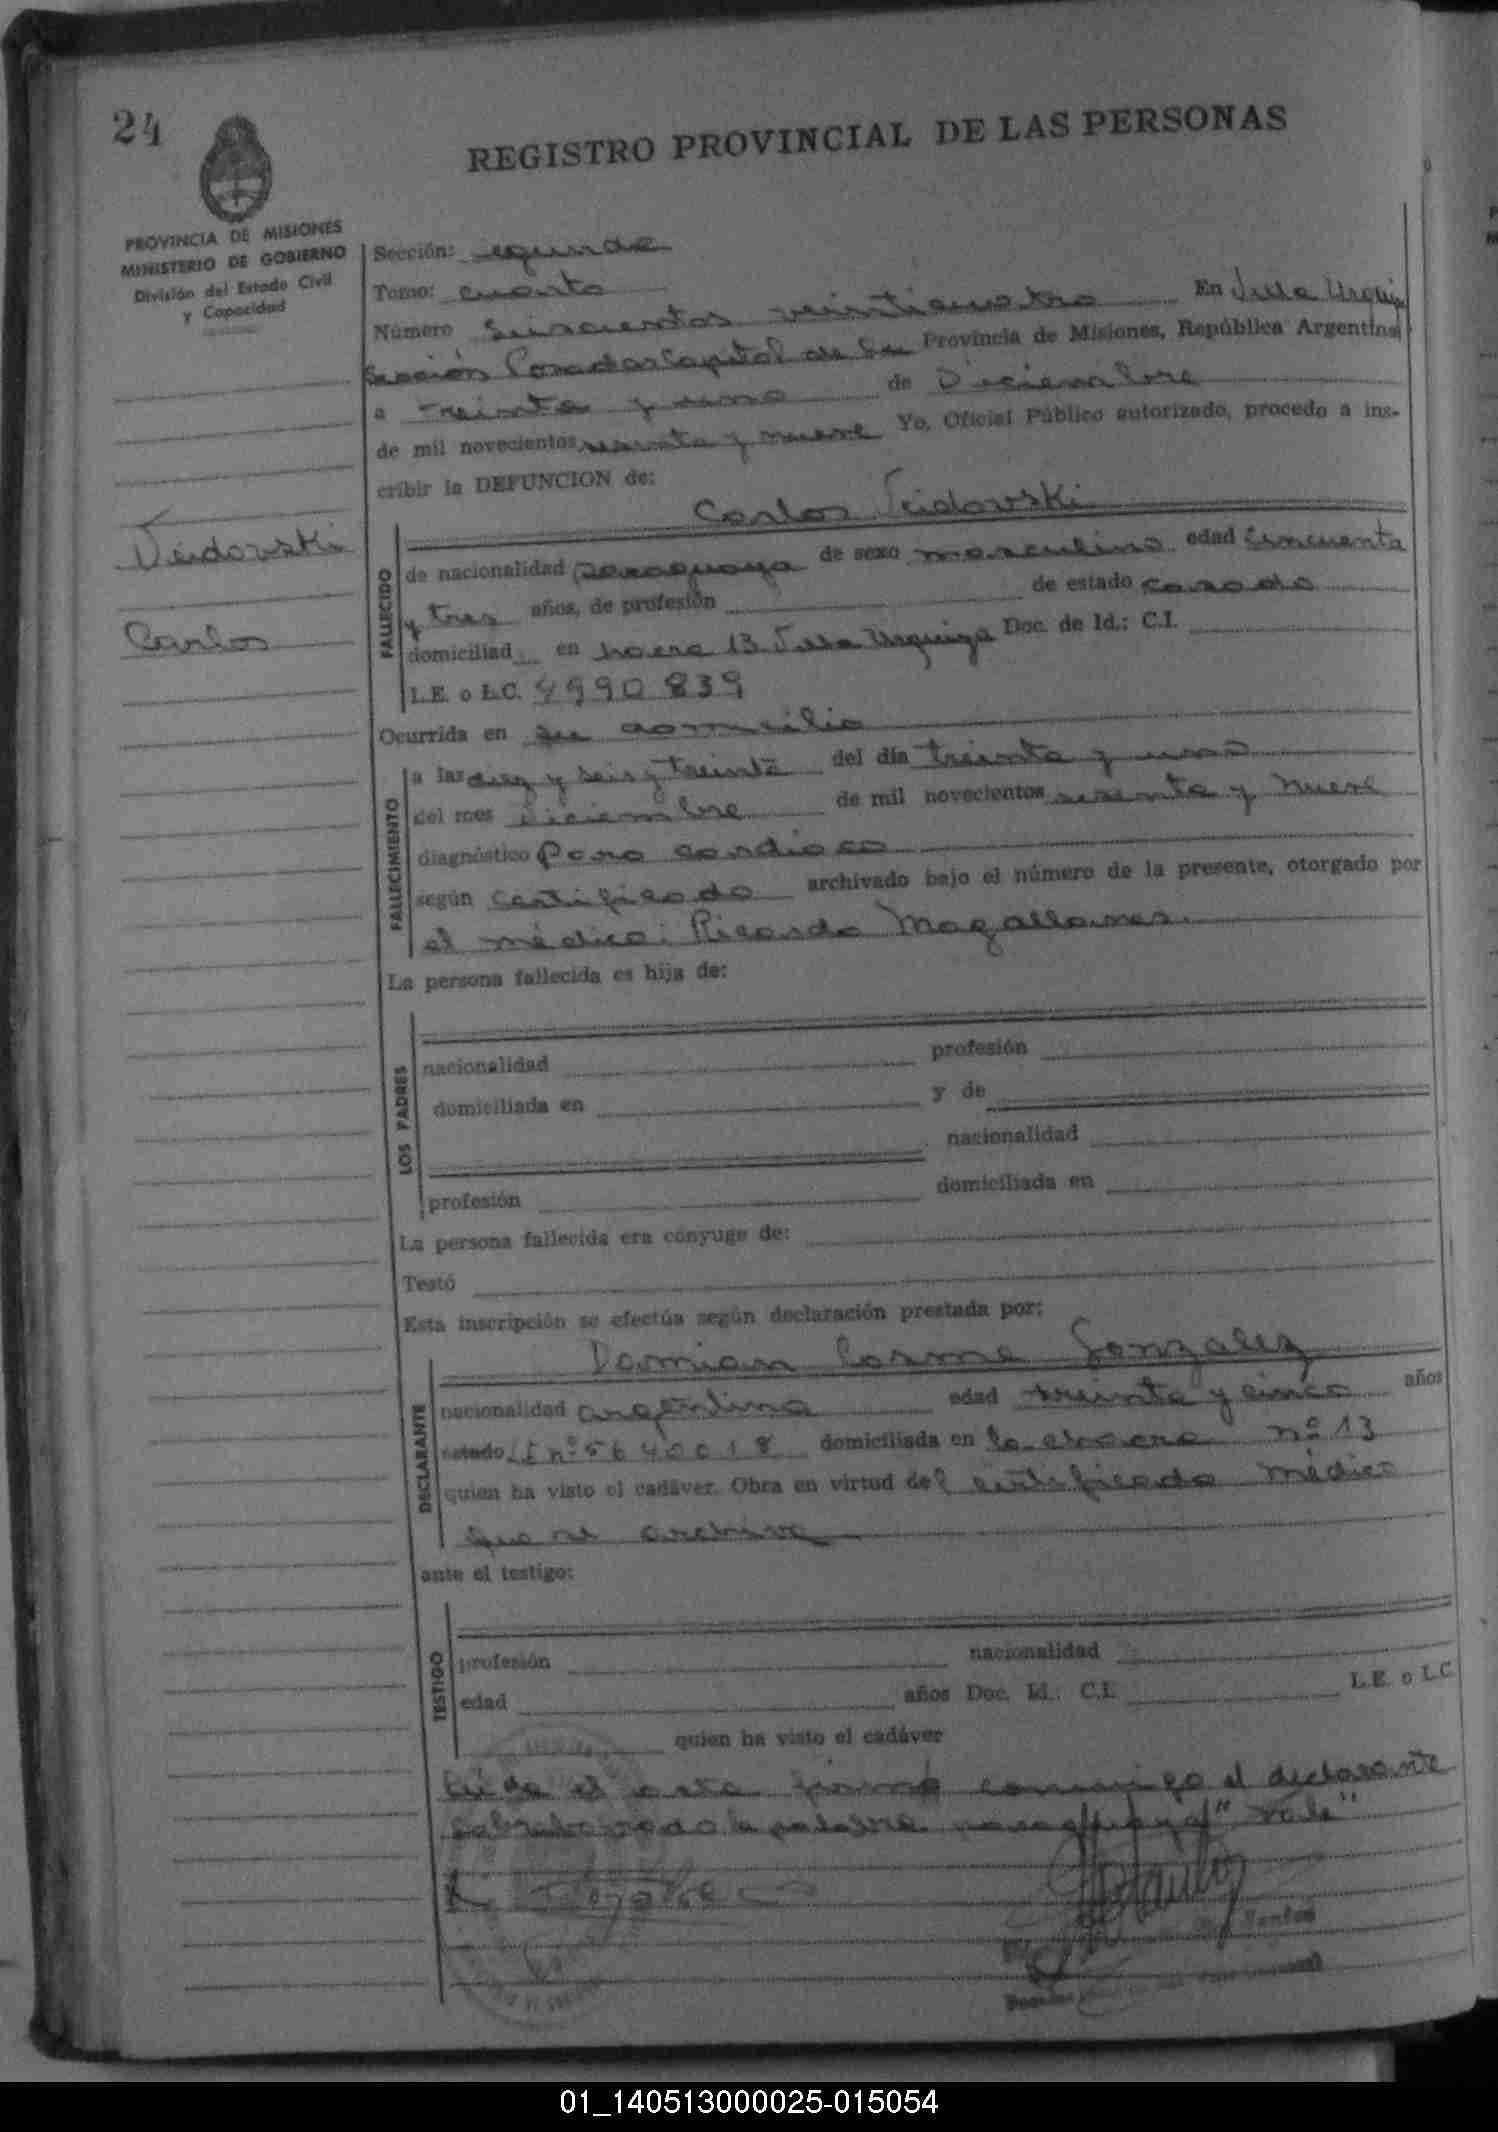 24
REGISTRO PROVINCIAL DE LAS PERSONAS
PROVINCIA DE MISIONES
MINISTERIO DE GOBIERNO
División del Estado Civil
y Capacidad
Sección: segunda
Tomo: cuarto
Número Seiscientos veinticuatro En Villa Urquiza
Sección Posadas Capital de la Provincia de Misiones, República Argentina
a treinta y uno de Diciembre
de mil novecientos sesenta y nueve Yo, Oficial Público autorizado, procedo a ins-
cribir la DEFUNCION de:
Carlos Veidovski
Veidovski
Carlos
FALLECIDO
de nacionalidad paraguaya de sexo masculino edad cincuenta
y tres años, de profesión de estado casado
domiciliad en chacra 13 Villa Urquiza Doc. de Id.: C.I.
L.E. o L.C. 4990839
Ocurrida en su domicilio
FALLECIMIENTO
a las diez y seis y treinta del día treinta y uno
del mes diciembre de mil novecientos sesenta y nueve
diagnóstico Paro cardiaco
según certificado archivado bajo el número de la presente, otorgado por
el médico: Ricardo Magallanes.
La persona fallecida es hija de:
LOS PADRES
nacionalidad profesión
domiciliada en y de
nacionalidad
profesión domiciliada en
La persona fallecida era cónyuge de:
Testó
Esta inscripción se efectúa según declaración prestada por:
Damian Cosme Gonzalez
DECLARANTE
nacionalidad argentina edad treinta y cinco años
estado LE nº 5640018 domiciliada en la chacra nº 13
quien ha visto el cadáver. Obra en virtud del certificado médico
que se archiva
ante el testigo:
TESTIGO
profesión nacionalidad
edad años Doc. Id.: C.I. L.E. o L.C
quien ha visto el cadáver
Leída el acta firma conmigo el declarante
sobreborrado la palabra "vale"